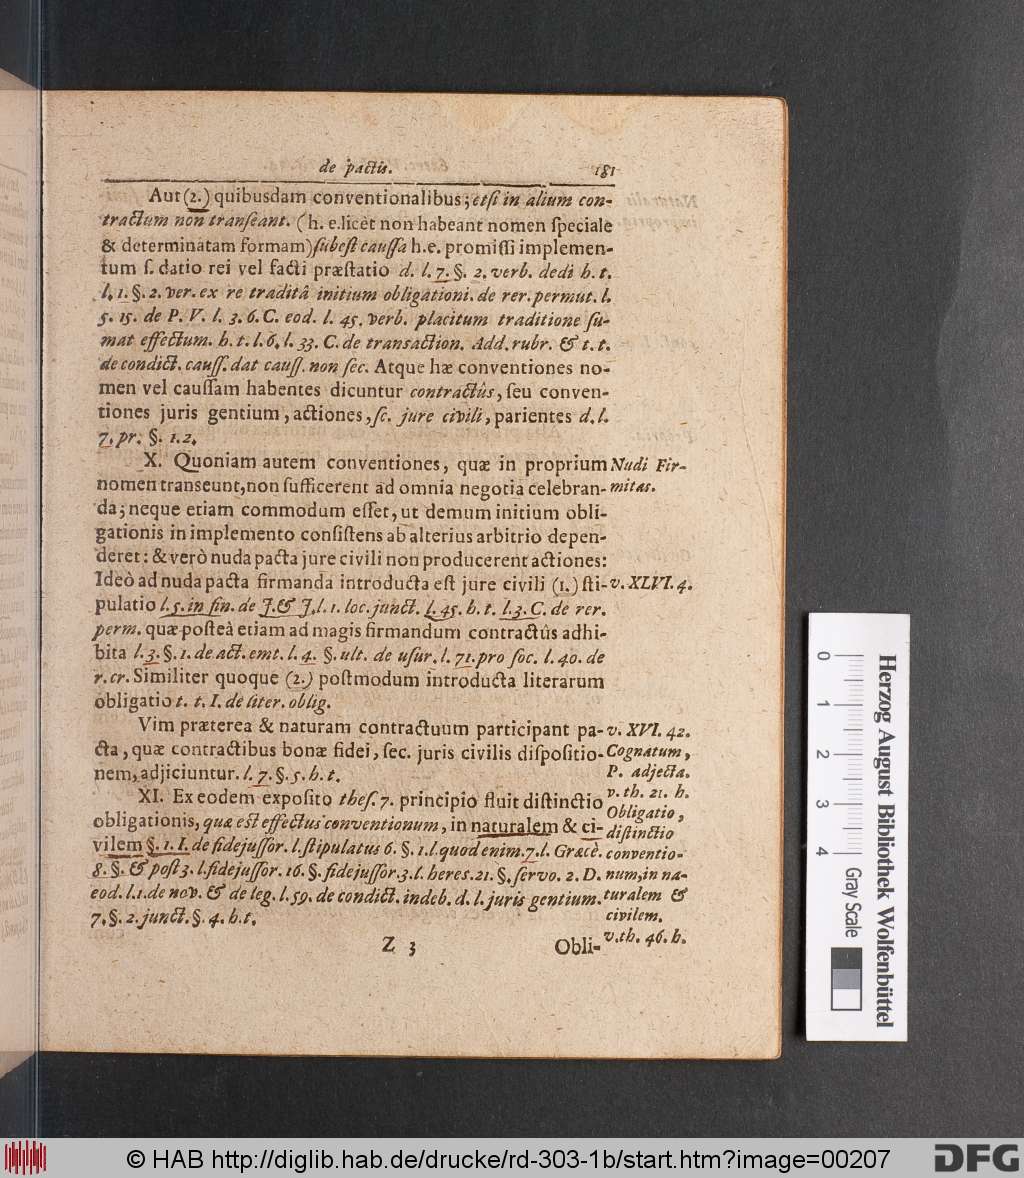 de pactis. 181
Aut (2.) quibusdam conventionalibus; etſi in alium con-
tractum non tranſeant. (h. e. licèt non habeant nomen ſpeciale
& determinatam formam) ſubeſt cauſſa h. e. promiſſi implemen-
tum ſ. datio rei vel facti præſtatio d. l. 7. §. 2. verb. dedi h. t.
l. 1. §. 2. ver. ex re traditâ initium obligationi. de rer. permut. l.
5. 15. de P. V. l. 3. 6. C. eod. l. 45. verb. placitum traditione ſu-
mat effectum. h. t. l. 6. l. 33. C. de transaction. Add. rubr. & t. t.
de condict. cauſſ. dat cauſſ. non ſec. Atque hæ conventiones no-
men vel cauſſam habentes dicuntur contractûs, ſeu conven-
tiones juris gentium, actiones, ſc. jure civili, parientes d. l.
7. pr. §. 1. 2.
X. Quoniam autem conventiones, quæ in proprium
nomen transeunt, non ſufficerent ad omnia negotia celebran-
da; neque etiam commodum eſſet, ut demum initium obli-
gationis in implemento conſiſtens ab alterius arbitrio depen-
deret: & verò nuda pacta jure civili non producerent actiones:
Ideò ad nuda pacta firmanda introducta eſt jure civili (1.) ſti-
pulatio l. 5. in fin. de J. & J. l. 1. loc. junct. l. 45. h. t. l. 3. C. de rer.
perm. quæ poſteà etiam ad magis firmandum contractûs adhi-
bita l. 3. §. 1. de act. emt. l. 4. §. ult. de uſur. l. 71. pro ſoc. l. 40. de
r. cr. Similiter quoque (2.) poſtmodum introducta literarum
obligatio t. t. I. de liter. oblig.
Vim præterea & naturam contractuum participant pa-
cta, quæ contractibus bonæ fidei, ſec. juris civilis diſpoſitio-
nem, adjiciuntur. l. 7. §. 5. h. t.
XI. Ex eodem expoſito theſ. 7. principio fluit diſtinctio
obligationis, quæ eſt effectus conventionum, in naturalem & ci-
vilem §. 1. I. de fidejuſſor. l. ſtipulatus 6. §. 1. l. quod enim. 7. l. Græcè.
8. §. & poſt 3. l. fidejuſſor. 16. §. fidejuſſor 3. l. heres. 21. §. ſervo. 2. D.
eod. l. 1. de nov. & de leg. l. 59. de condict. indeb. d. l. juris gentium.
7. §. 2. junct. §. 4. h. t.
Z 3 Obli-
Nudi Fir-
mitas.
v. XLVI. 4.
v. XVI. 42.
Cognatum,
P. adjecta.
v. th. 21. h.
Obligatio,
diſtinctio
conventio-
num, in na-
turalem &
civilem.
v. th. 46. h.
0 1 2 3 4
Gray Scale
Herzog August Bibliothek Wolfenbüttel
© HAB http://diglib.hab.de/drucke/rd-303-1b/start.htm?image=00207
DFG